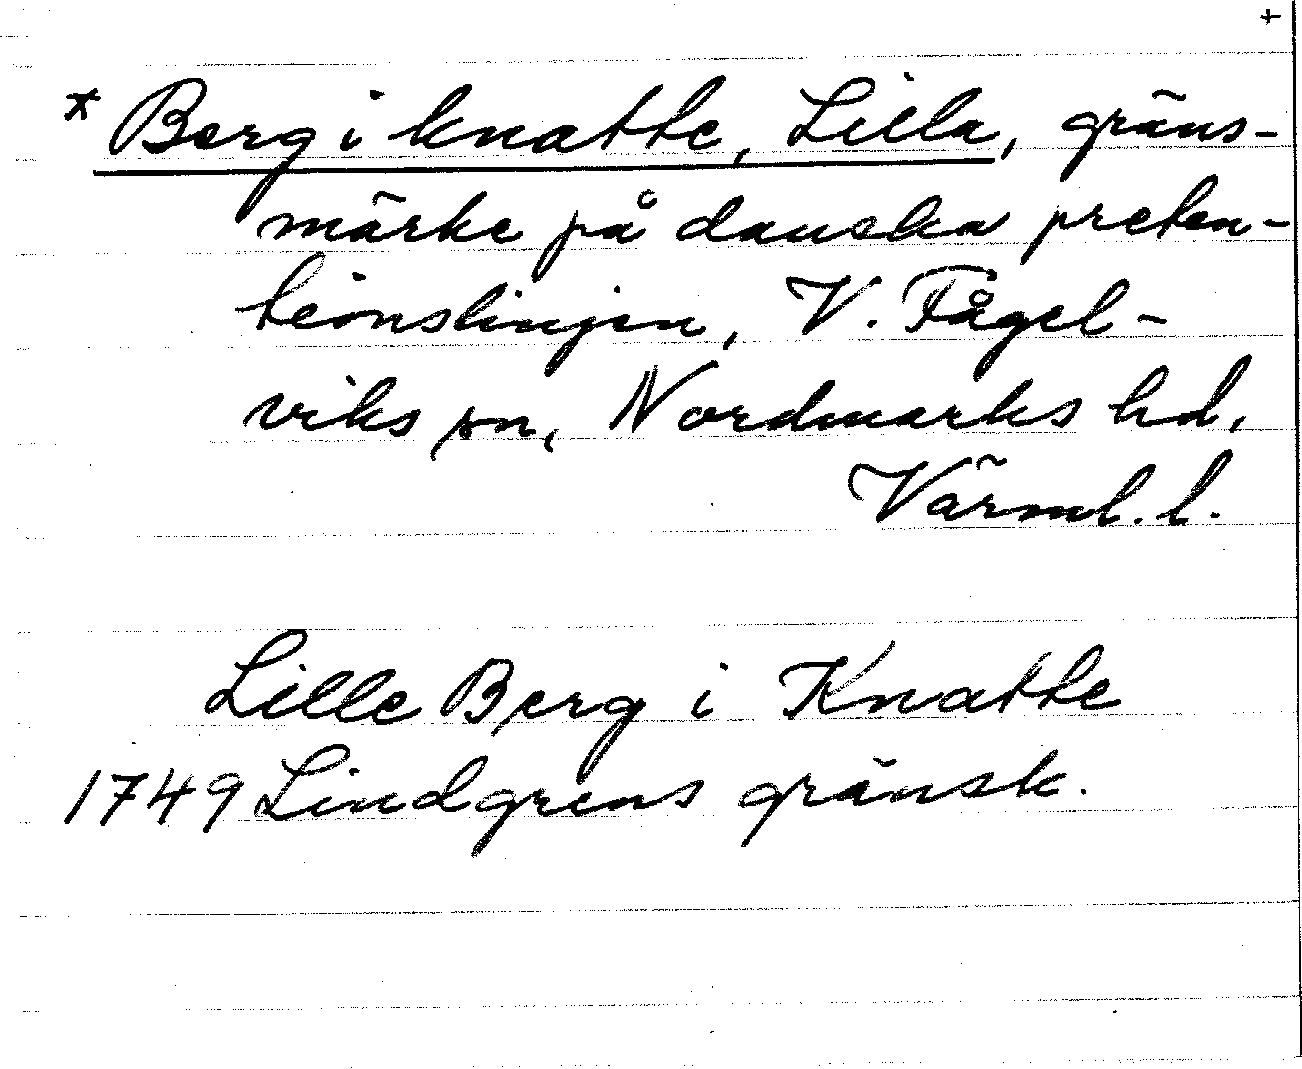 +
* Berg i knatte, Lilla, gräns-
märke på danska preten-
tionslinjen, V. Fågel-
viks sn, Nordmarks hd,
Värml. l.
Lille Berg i Knatte
1749 Lindgrens gränsk.